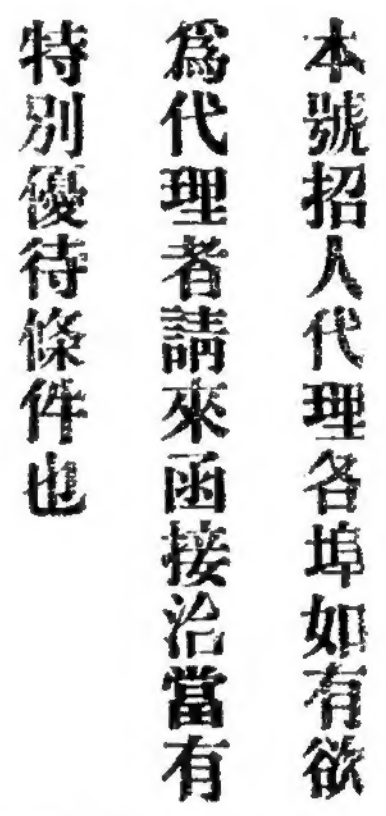 本號招人代理各埠如有欲
爲代理者請來函接洽當有
特別優待條件也